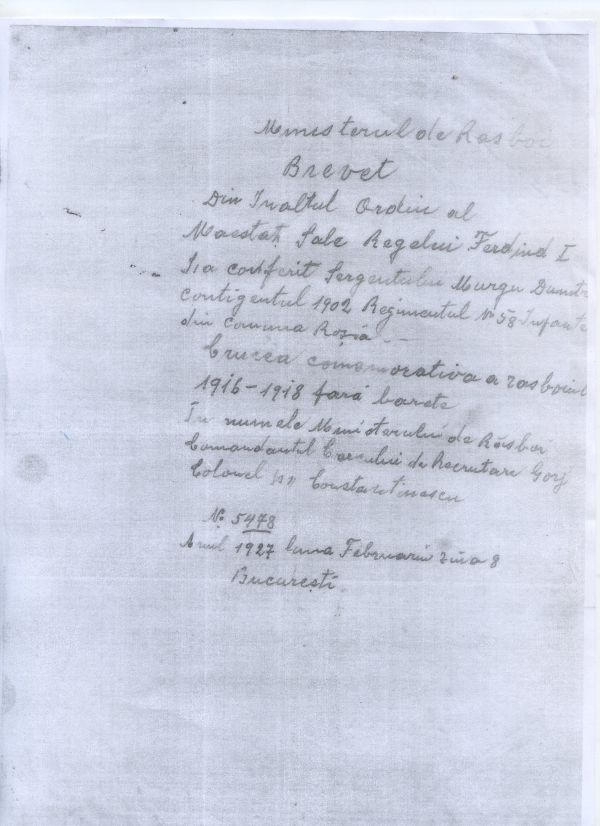 Ministerul de Rasboi
Brevet
Din Inaltul Ordin al
Maestati Sale Regelui Ferdind I
S'a conferit Sergentului Murgu Dumitr
contigentul 1902 Regimentul No 58 Infante
din comuna Roșia
Crucea comemorativa a rasboiul
1916-1918 fară barete
In numele Ministerului de Răsboi
Comandantul Cercului de Recrutare Gorj
Colonel Constantinescu
No 5478
Anul 1927 luna Februarie ziua 8
București